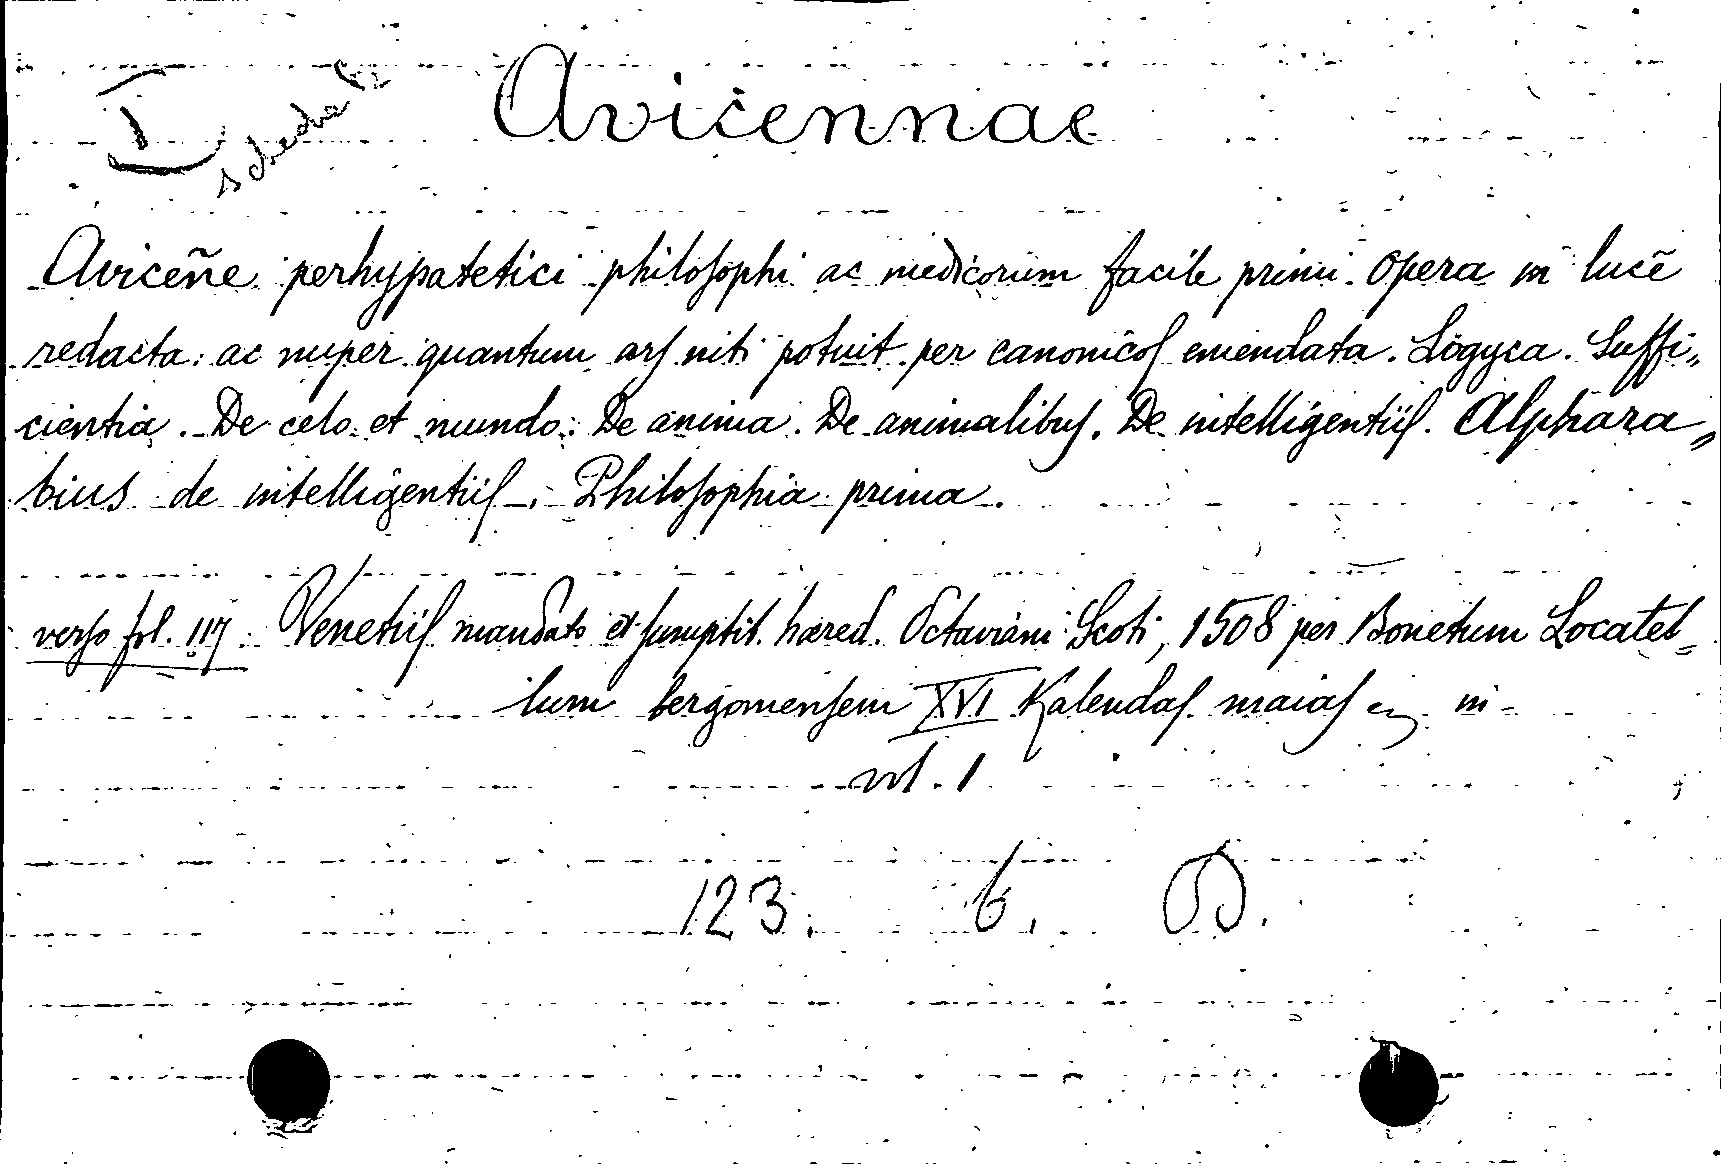 I scheda
Avicennae
Aviceñe perhypatetici philoſophi ac medicorum facile primi. Opera in lucē
redacta: ac nuper quantum arſ niti potuit per canonicoſ emendata. Logyca. Suffi„
cientia. De celo et mundo: De anima. De animalibuſ. De intelligentiiſ. Alphara„
bius de intelligentiiſ. Philoſophia prima.
verſo fol. 117: Venetiiſ mandato et ſumptib. hared. Octaviani Scoti, 1508 per Bonetum Locatel„
lum bergomenſem XVI Kalendaſ maiaſ in-
vol. 1
123. 6. D.